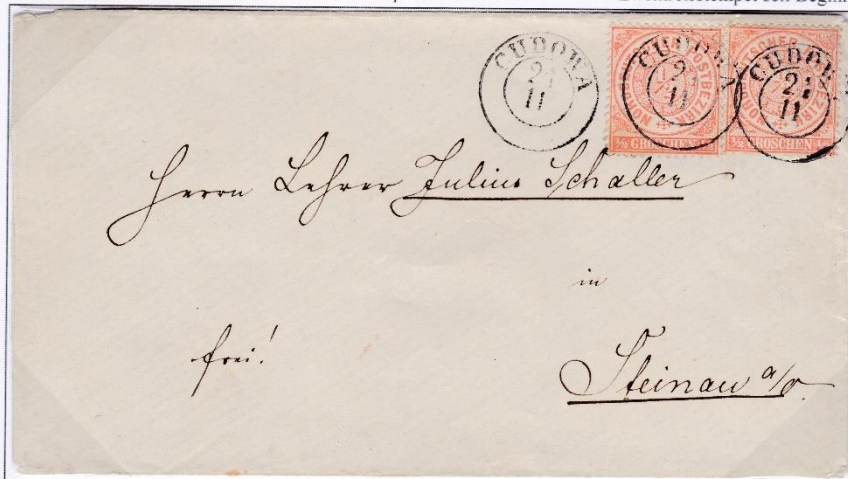 CUDOWA CUDOWA CUDOWA
11 11 11
NORDDEUTSCHER POSTBEZIRK
1/2 GROSCHEN 1/2 GROSCHEN
Herrn Lehrer Julius Schaller
in
frei!
Steinau a/o.